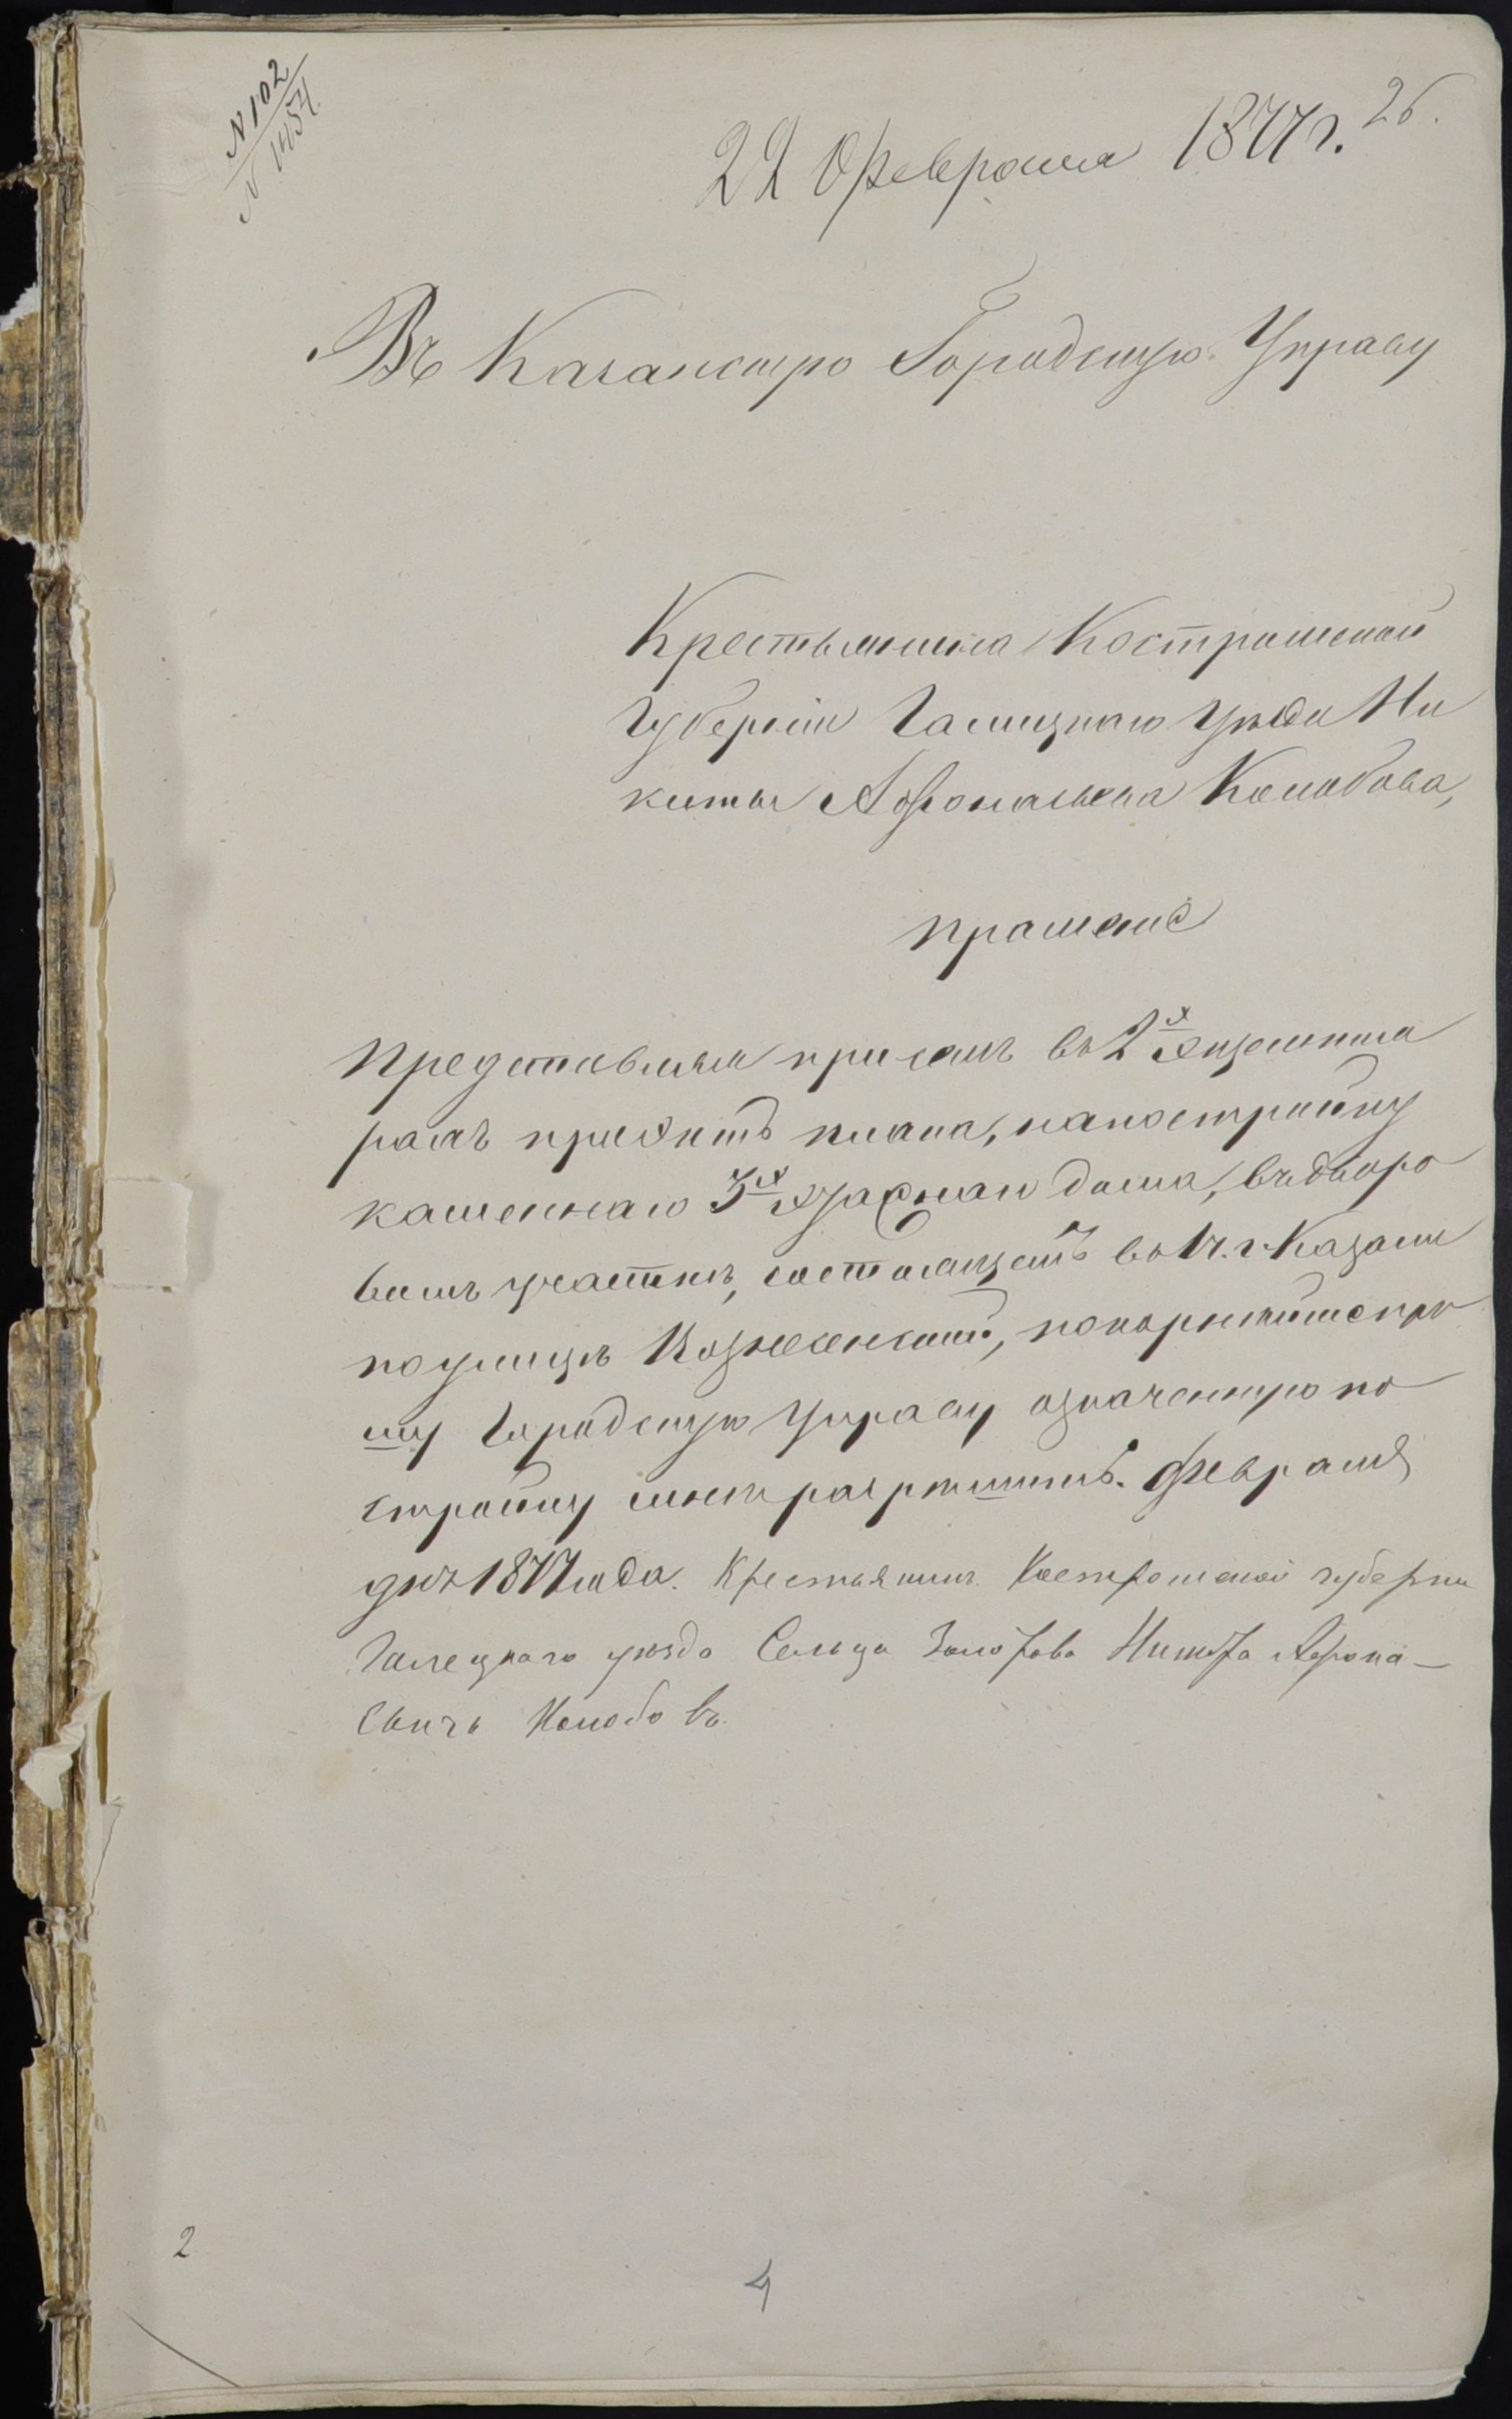 N 102
N 1454
26.
22 Февраля 1877 г.
Въ Казанскую Городскую Управу
Крестьянина Костромской
Губернiи Галицкаго Уѣзда Ни
киты Афонасьева Колобова,
прошенiе
Представляя присемъ въ 2х экземпля
рахъ проэктъ плана, напостройку
каменнаго 3х этажнаго дома, въ дворо
вомъ участкѣ, состоящемъ въ 1 ч. г. Казани
поулицѣ Вознесенской, покорнѣйше про
шу Городскую Управу означенную по
стройку мнѣ разрѣшить. Февраля
дня 1877 года. Крестьянинъ Костромской губернiи
Галецкаго уѣзда Сельца Никита Афона-
сьичъ Колобовъ.
2
4